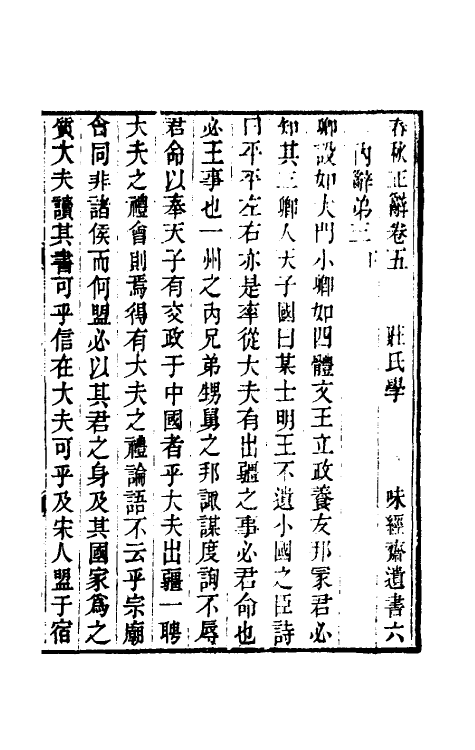 春秋正辭卷五　莊氏學　味經齋遺書六
內辭弟三下
卿設如大門小卿如四體文王立政養友邦冢君必
知其三卿入天子國曰某士明王不遺小國之臣詩
曰平平左右亦是率從大夫有出疆之事必君命也
必王事也一州之內兄弟甥舅之邦諏謀度詢不辱
君命以奉天子有交政于中國者乎大夫出疆一聘
大夫之禮會則焉得有大夫之禮論語不云乎宗廟
會同非諸侯而何盟必以其君之身及其國家爲之
質大夫讀其書可乎信在大夫可乎及宋人盟于宿